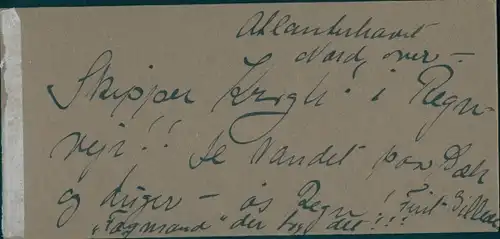 Atlanterhavet
Nord over –
Skipper Krogh! i Regn
vejr!! Se Vandet paa Dæk
og driver – os Regn! Fint Billede
"Fagmand" der tog det!!!